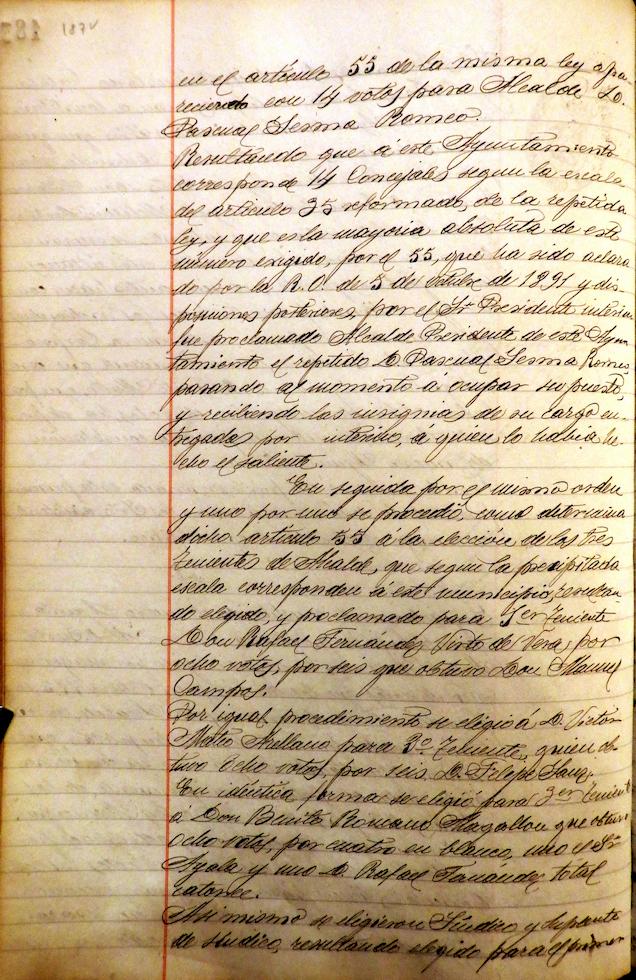 187v
en el artículo 55 de la misma ley apa-
reciendo con 14 votos para Alcalde D.
Pascual Sesma Romeo.
Resultando que á este Ayuntamiento
corresponde 14 Concejales segun la escala
del articulo 35 reformado, de la repetida
ley, y que es la mayoria absoluta de este
número exigido, por el 55, que ha sido aclara-
do por la R.O. de 5 de Octubre de 1891 y dis-
posiciones posteriores, por el Sr. Presidente interino
fue proclamado Alcalde Presidente de este Ayun-
tamiento el repetido D. Pascual Sesma Romeo
pasando al momento a ocupar su puesto,
y recibiendo las insignias de su cargo en-
tregadas por interino, á quien lo habia he-
cho el saliente.
En seguida por el mismo orden
y uno por uno se procedió, como determina
dicho articulo 55 á la eleccion de los tres
Tenientes de Alcalde, que segun la precipitada
escala corresponden á este municipio, resultan-
do elegido, y proclamado para 1er Teniente
Don Rafael Fernández Virto de Vera, por
ocho votos, por seis que obtuvo Don Manuel
Campos.
Por igual procedimiento se eligió á D. Victor
Mateo Arellano para 2º Teniente, quien ob-
tuvo ocho votos, por seis D. Felipe Sanz.
En identica forma se eligió para 3er Teniente
á Don Benito Romano Magallon que obtuvo
ocho votos, por cuatro en blanco, uno el Sr.
Ayala y uno D. Rafael Fernández, total
catorce.
Asi mismo se eligieron Síndico y Suplente
de Síndico, resultando elegido para el primer